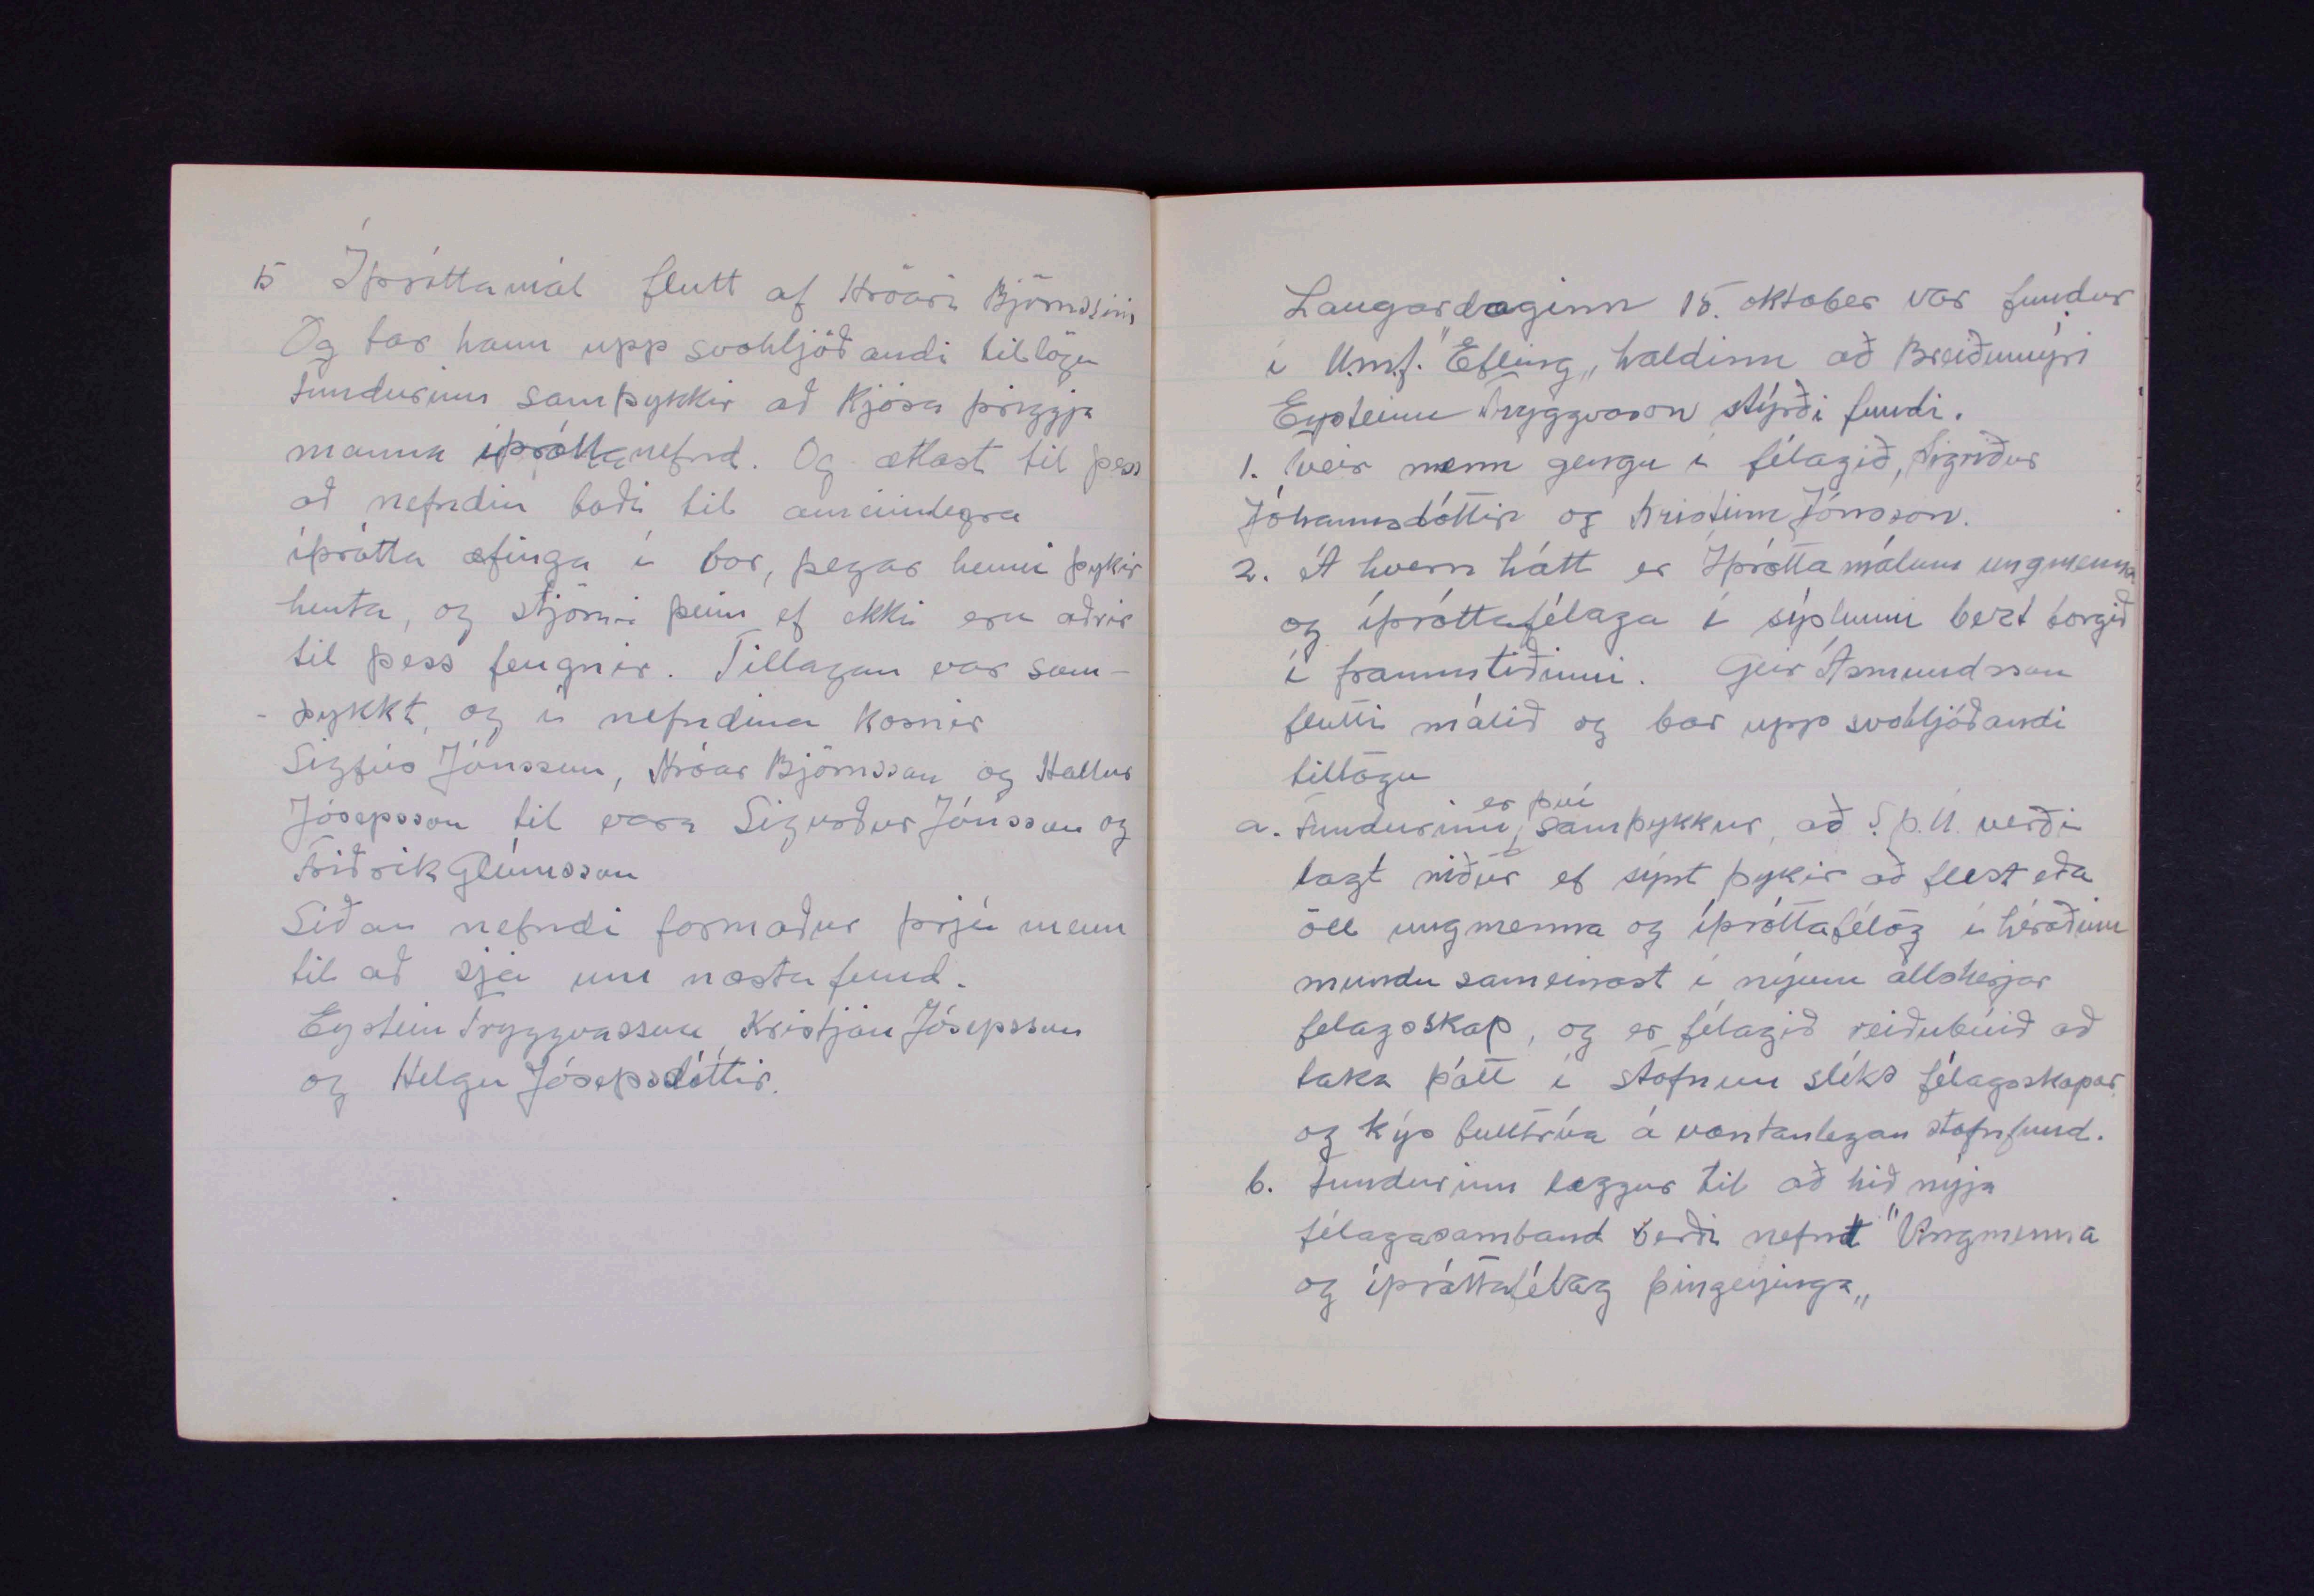 5 Íþróttamál flutt af Hróari Björnssini
Og bar hann upp svohljóðandi tillögu
Fundurinn samþykkir að kjósa þriggja
manna íþróttanefnd. Og ætlast til þess
að nefndin boði til
íþrótta æfinga í vor, þegar henni þykir
henta, og stjórni þeim ef ekki eru aðrir
til þess fengnir. Tillagan var sam-
-þykkt, og í nefndina kosnir
Sigfús Jónsson, Hróar Björnsson og Hallur
Jósepsson til vara Sigurður Jónsson og
Friðrik Glúmsson
Síðan nefndi formaður þrjá menn
til að sjá um næsta fund.
Eystein Tryggvasson, Kristján Jósepsson
og Helgu Jósepsdóttir.
Laugardaginn 15. oktober var fundur
í U.m.f. "Efling„ haldinn að Breiðumýri
Eysteinn Tryggvason stýrði fundi.
1. Tveir menn gengu í félagið, Sigríður
Jóhannsdóttir og Kristinn Jónsson.
2. Á hvern hátt er Íþróttamálum ungmenna
og íþróttafélaga í sýslunni bezt borgið
í frammtíðinni. Geir Ásmundsson
flutti málið og bar upp svohljóðandi
tillögu
a. Fundurinn er því samþykkur, að S.þ.U. verði
lagt niður ef sýnt þykir að flest eða
öll ungmenna og íþróttafélög í héraðinu
mundu sameinast í nýjum allsherjar
felagsskap, og er félagið reiðubúið að
taka þátt í stofnun slíks félagsskapar
og kýs fulltrúa á væntanlegan stofnfund.
b. Fundurinn leggur til að hið nýja
félagasamband verði nefnt "Ungmenna
og íþróttafélag Þingeyinga„